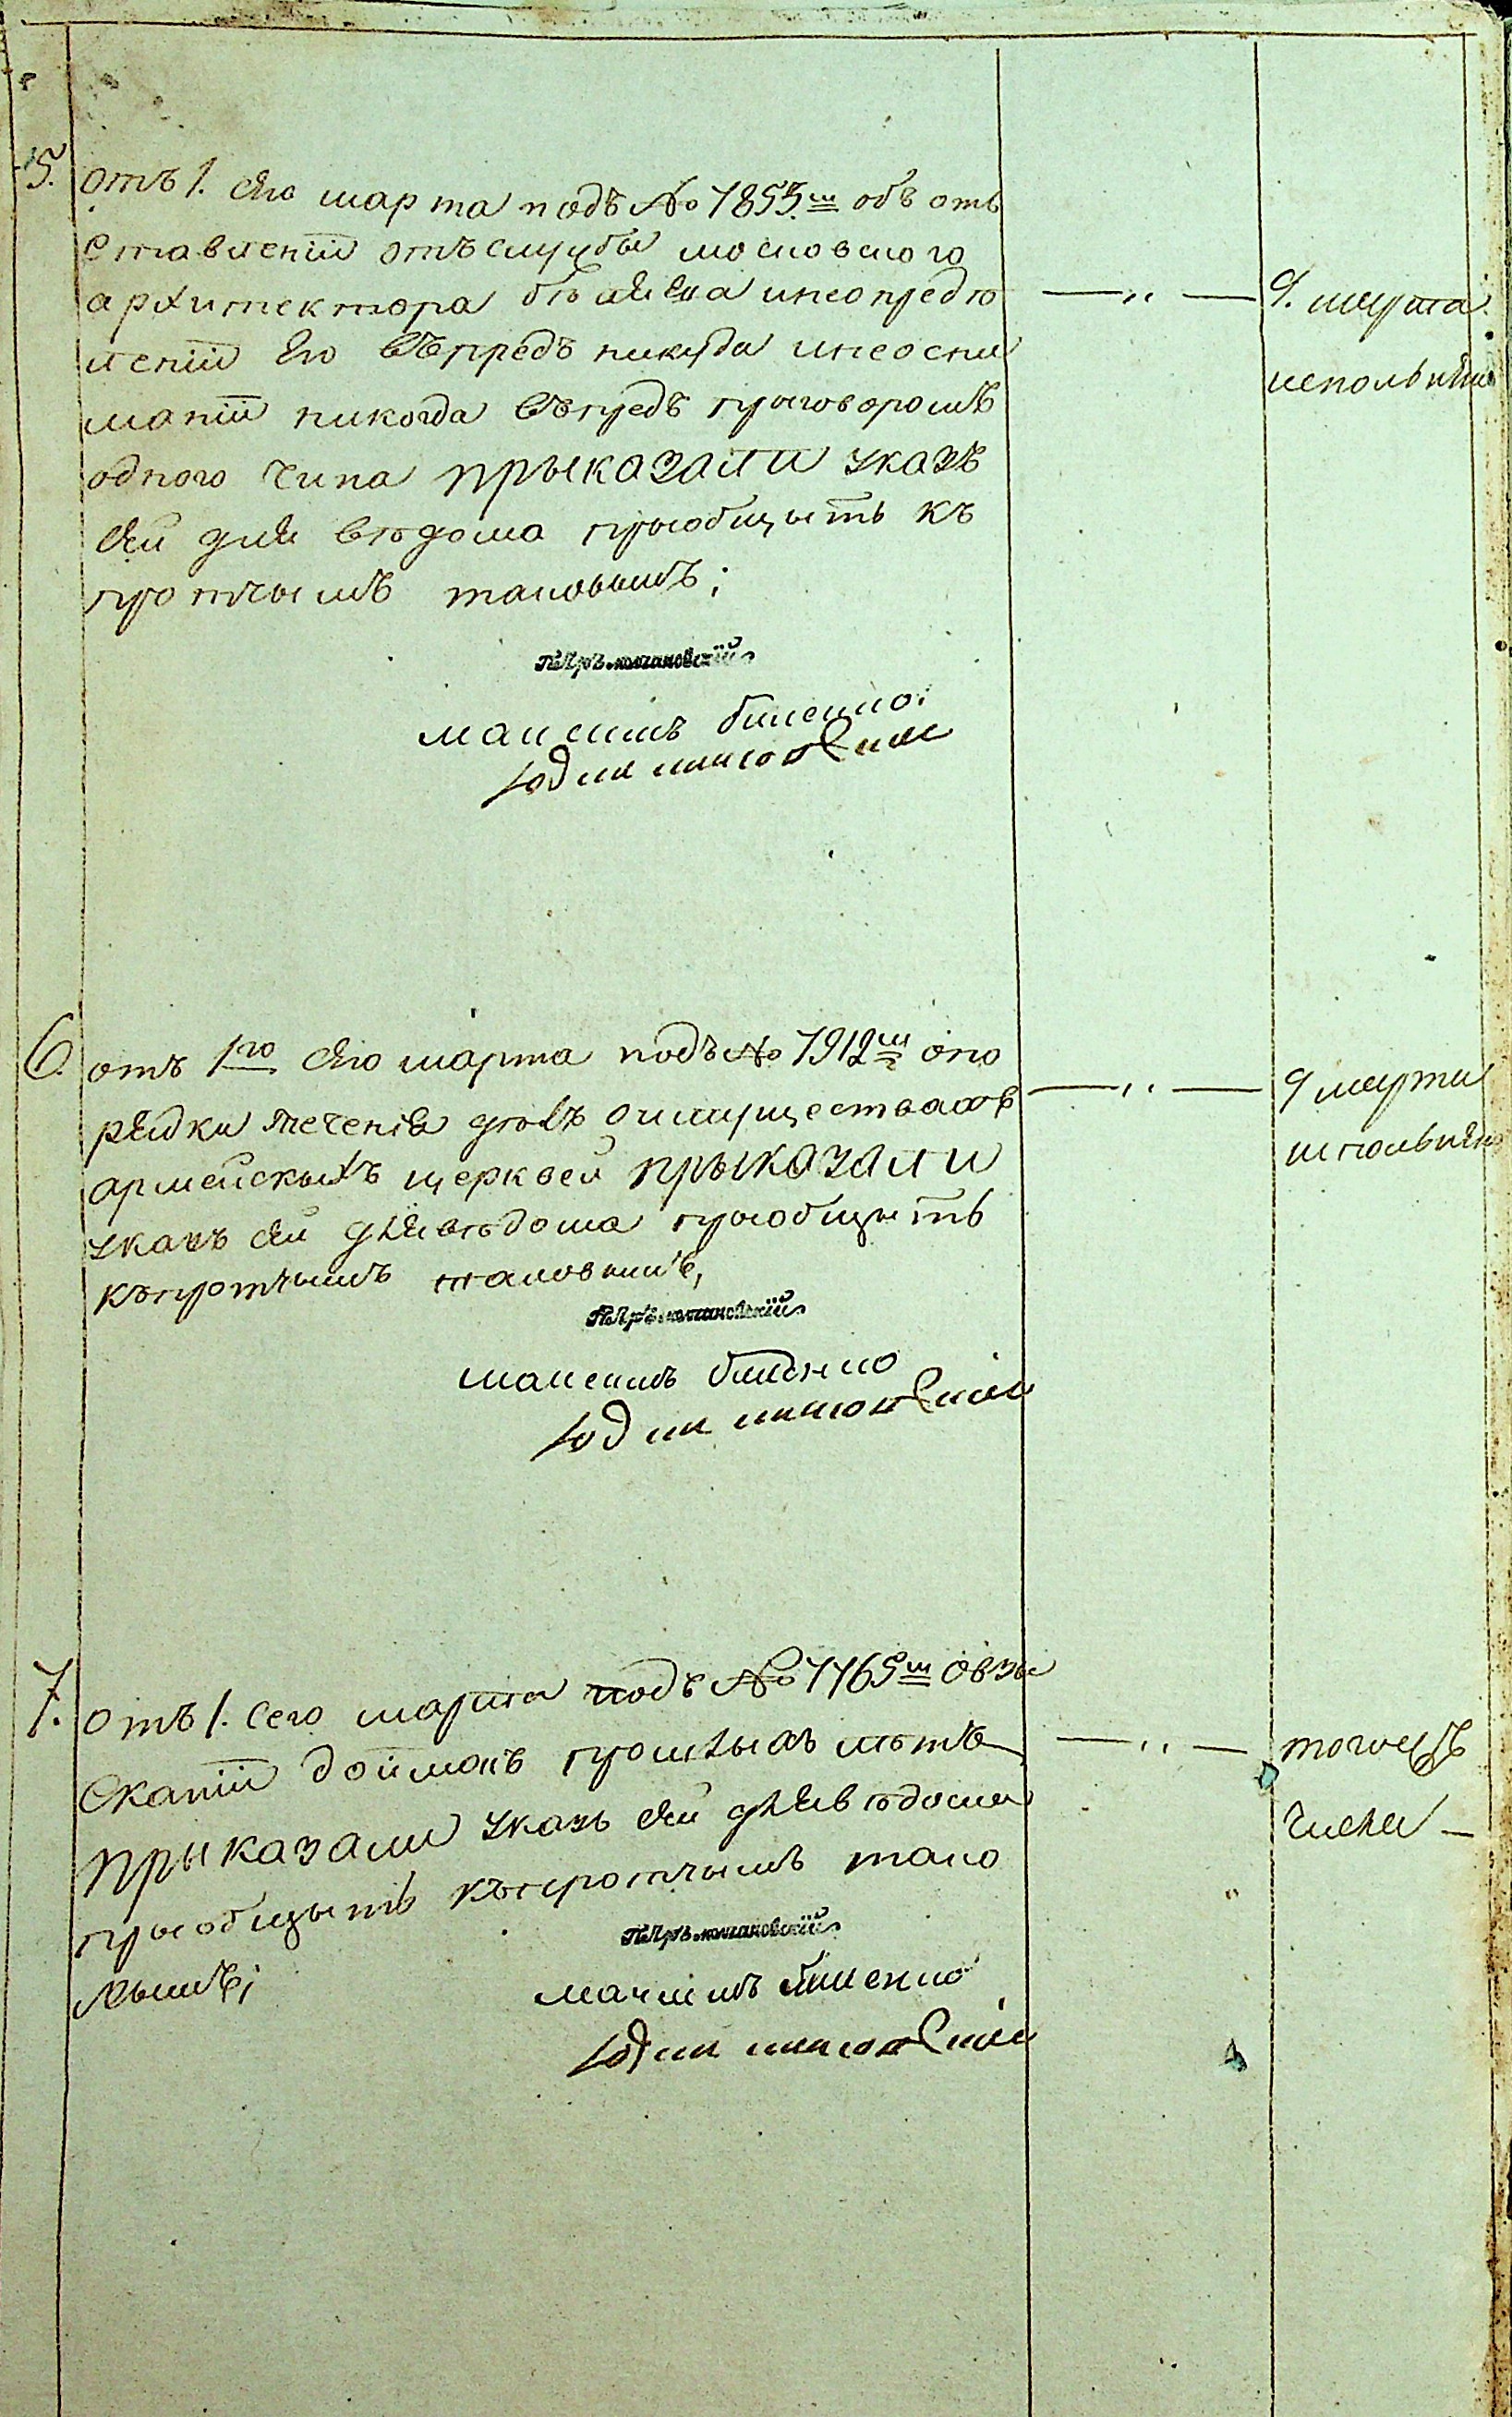 5.
отъ 1. сего марта подъ № 1855.м объ отъ
ставленіи отъ службы московского
архитектора и неопредѣ
леніи его въпредъ никуда и неосни
маніи никогда въпредъ приговоромъ
одного чина прыказали указъ
сей для вѣдома прыобщыть къ
протчымъ таковымъ;
Максимъ
9. марта
исполънено
6.
отъ 1го сего марта подъ № 1912м о по
рядки теченія дѣлъ о имуществахъ
армейскыхъ церквей прыказали
указъ сей для вѣдома прыобщыть
къ протчымъ таковымъ,
Максимъ
9 марта
исполънено
7.
отъ 1. сего марта подъ № 1765м о взы
сканіи доимокъ прошлыхъ лѣтъ
прыказали указъ сей для вѣдома
прыобщыть къ протчымъ тако
вымъ;
Максимъ
тогожъ
числа